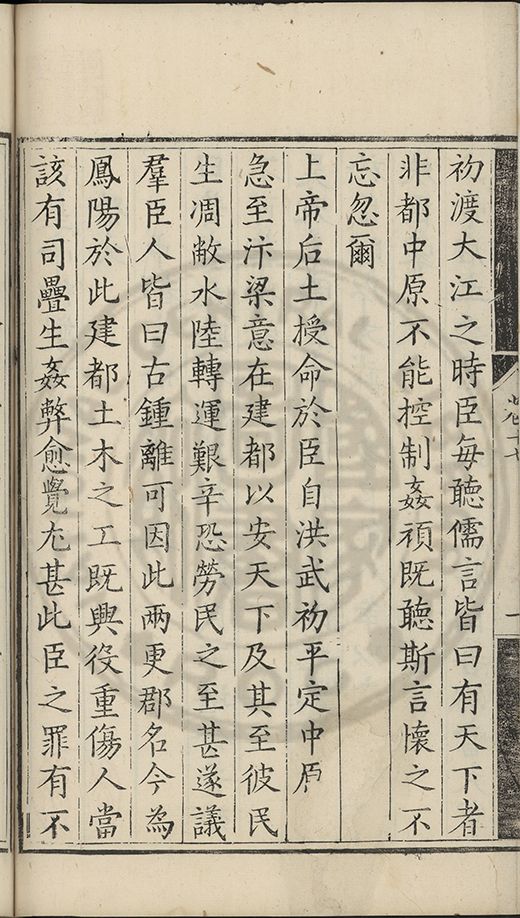 卷十七
一
初渡大江之時臣每聽儒言皆曰有天下者
非都中原不能控制姦頑既聽斯言懷之不
忘忽爾
上帝后土授命於臣自洪武初平定中原
急至汴梁意在建都以安天下及其至彼民
生凋敝水陸轉運艱辛恐勞民之至甚遂議
羣臣人皆曰古鍾離可因此兩更郡名今為
鳳陽於此建都土木之工既興役重傷人當
該有司疊生姦弊愈覺尤甚此臣之罪有不